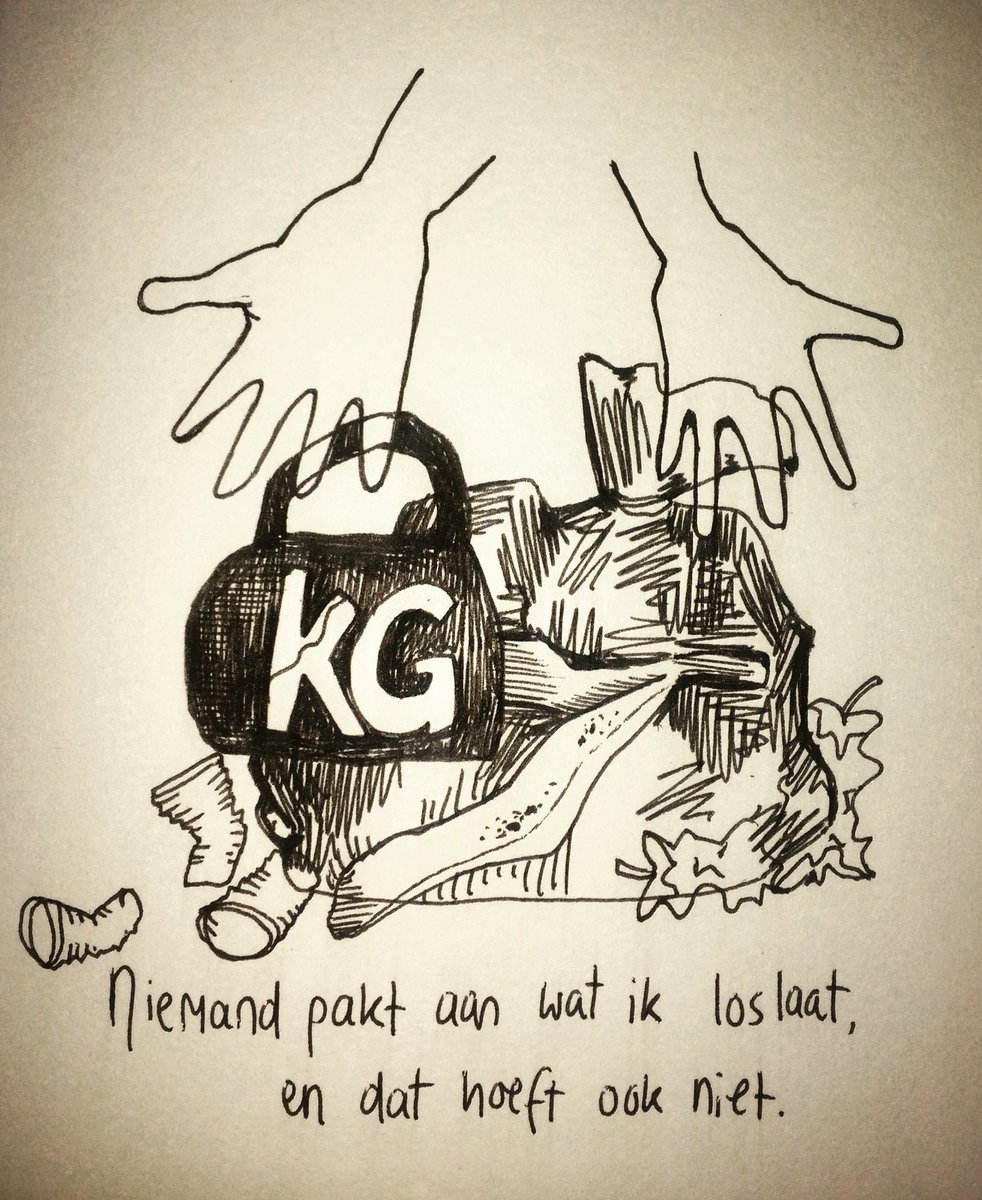 KG
Niemand pakt aan wat ik los laat,
en dat hoeft ook niet.